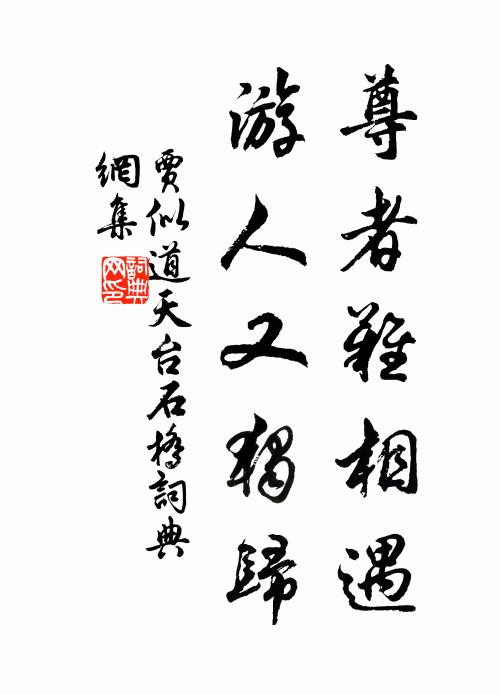 尊者難相遇
游人又獨歸
賈似道天台石橋詞典
網集
詞典網印